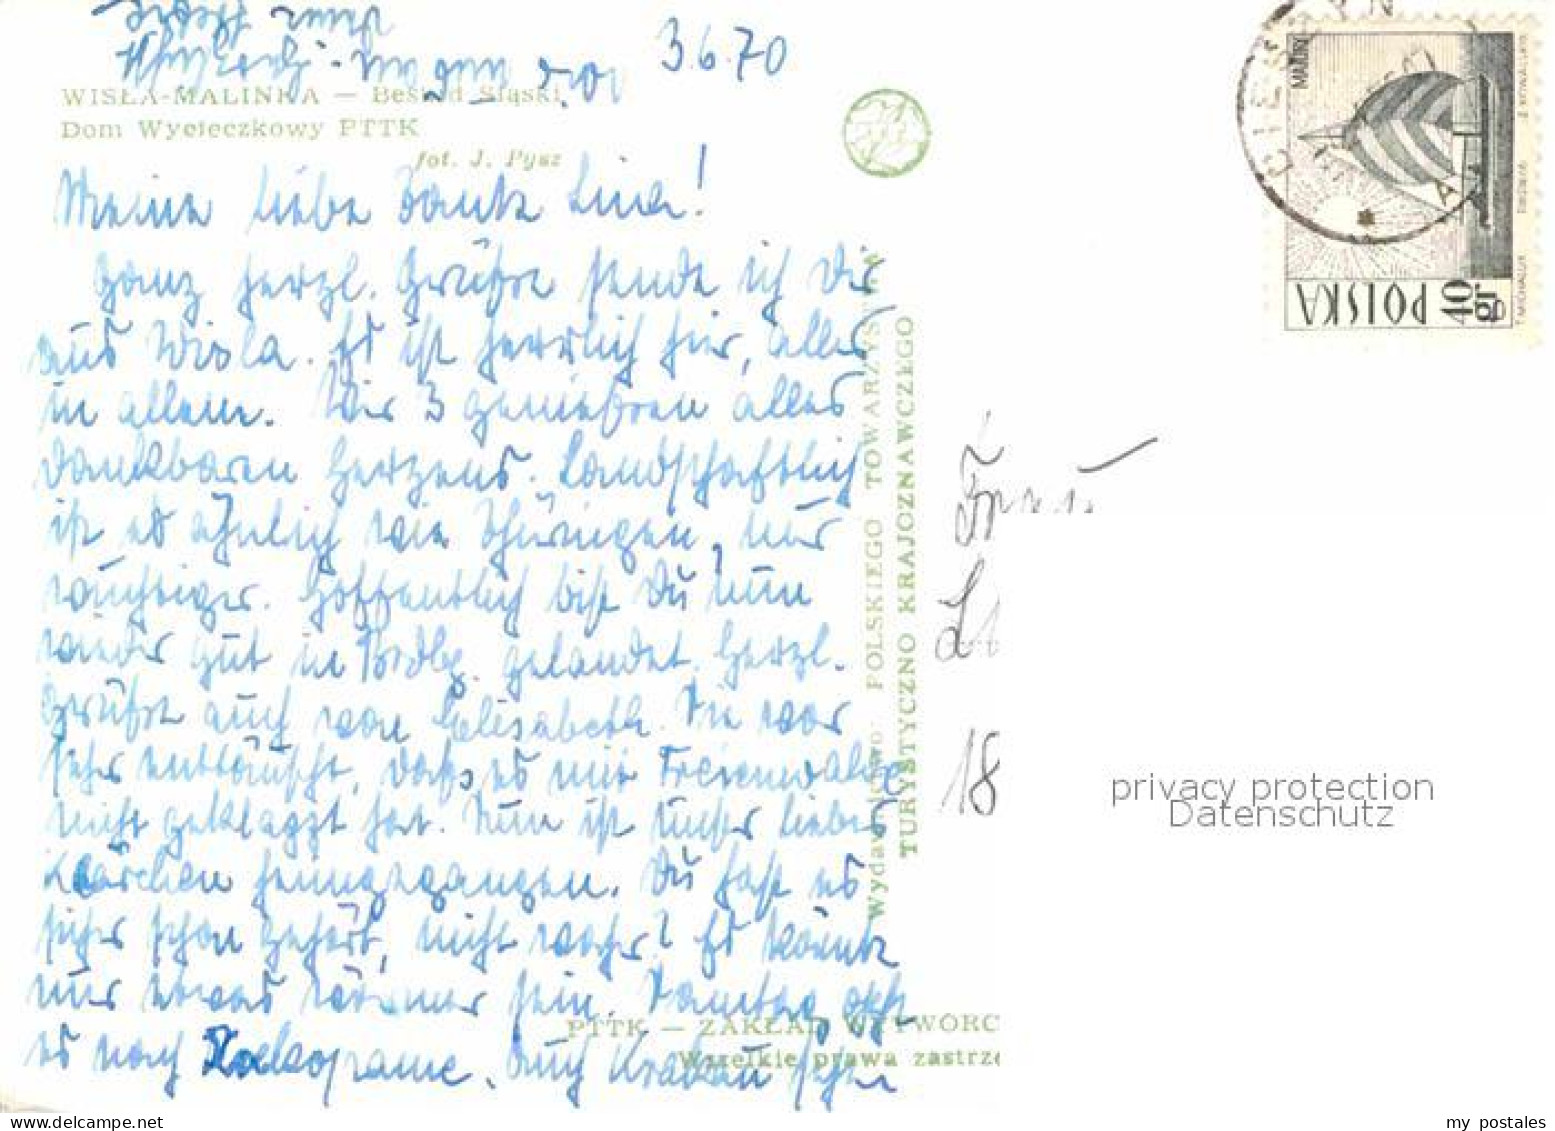 3.6.70
WISŁA-MALINKA — Beskid Śląski
Dom Wycieczkowy PTTK
fot. J. Pysz
Meine liebe Tante Lina!
Ganz herzl. Grüße sende ich Dir
aus Wisla. Es ist herrlich hier, alles
in allem. Wir 3 genießen alles
dankbaren Herzens. Landschaftlich
ist es ähnlich wie Thüringen, nur
wuchtiger. Hoffentlich bist Du nun
wieder gut in Brdbg. gelandet. Herzl.
Grüße auch von Elisabeth. Sie war
sehr enttäuscht, daß es mit Freienwalde
nicht geklappt hat. Nun ist unser liebes
Klärchen heimgegangen. Du hast es
sicher schon gehört, nicht wahr? Es könnte
nur etwas wärmer sein. Samstag geht
es nach Zakopane. Auch Krakau sehen
Wydawnictwo POLSKIEGO TOWARZYSTWA
TURYSTYCZNO KRAJOZNAWCZEGO
PTTK — ZAKŁAD WYTWÓRC
Wszelkie prawa zastrze
CIESZYN
MARLIN
40 gr
POLSKA
T. MICHALUK
Frau
18
privacy protection
Datenschutz
my postales